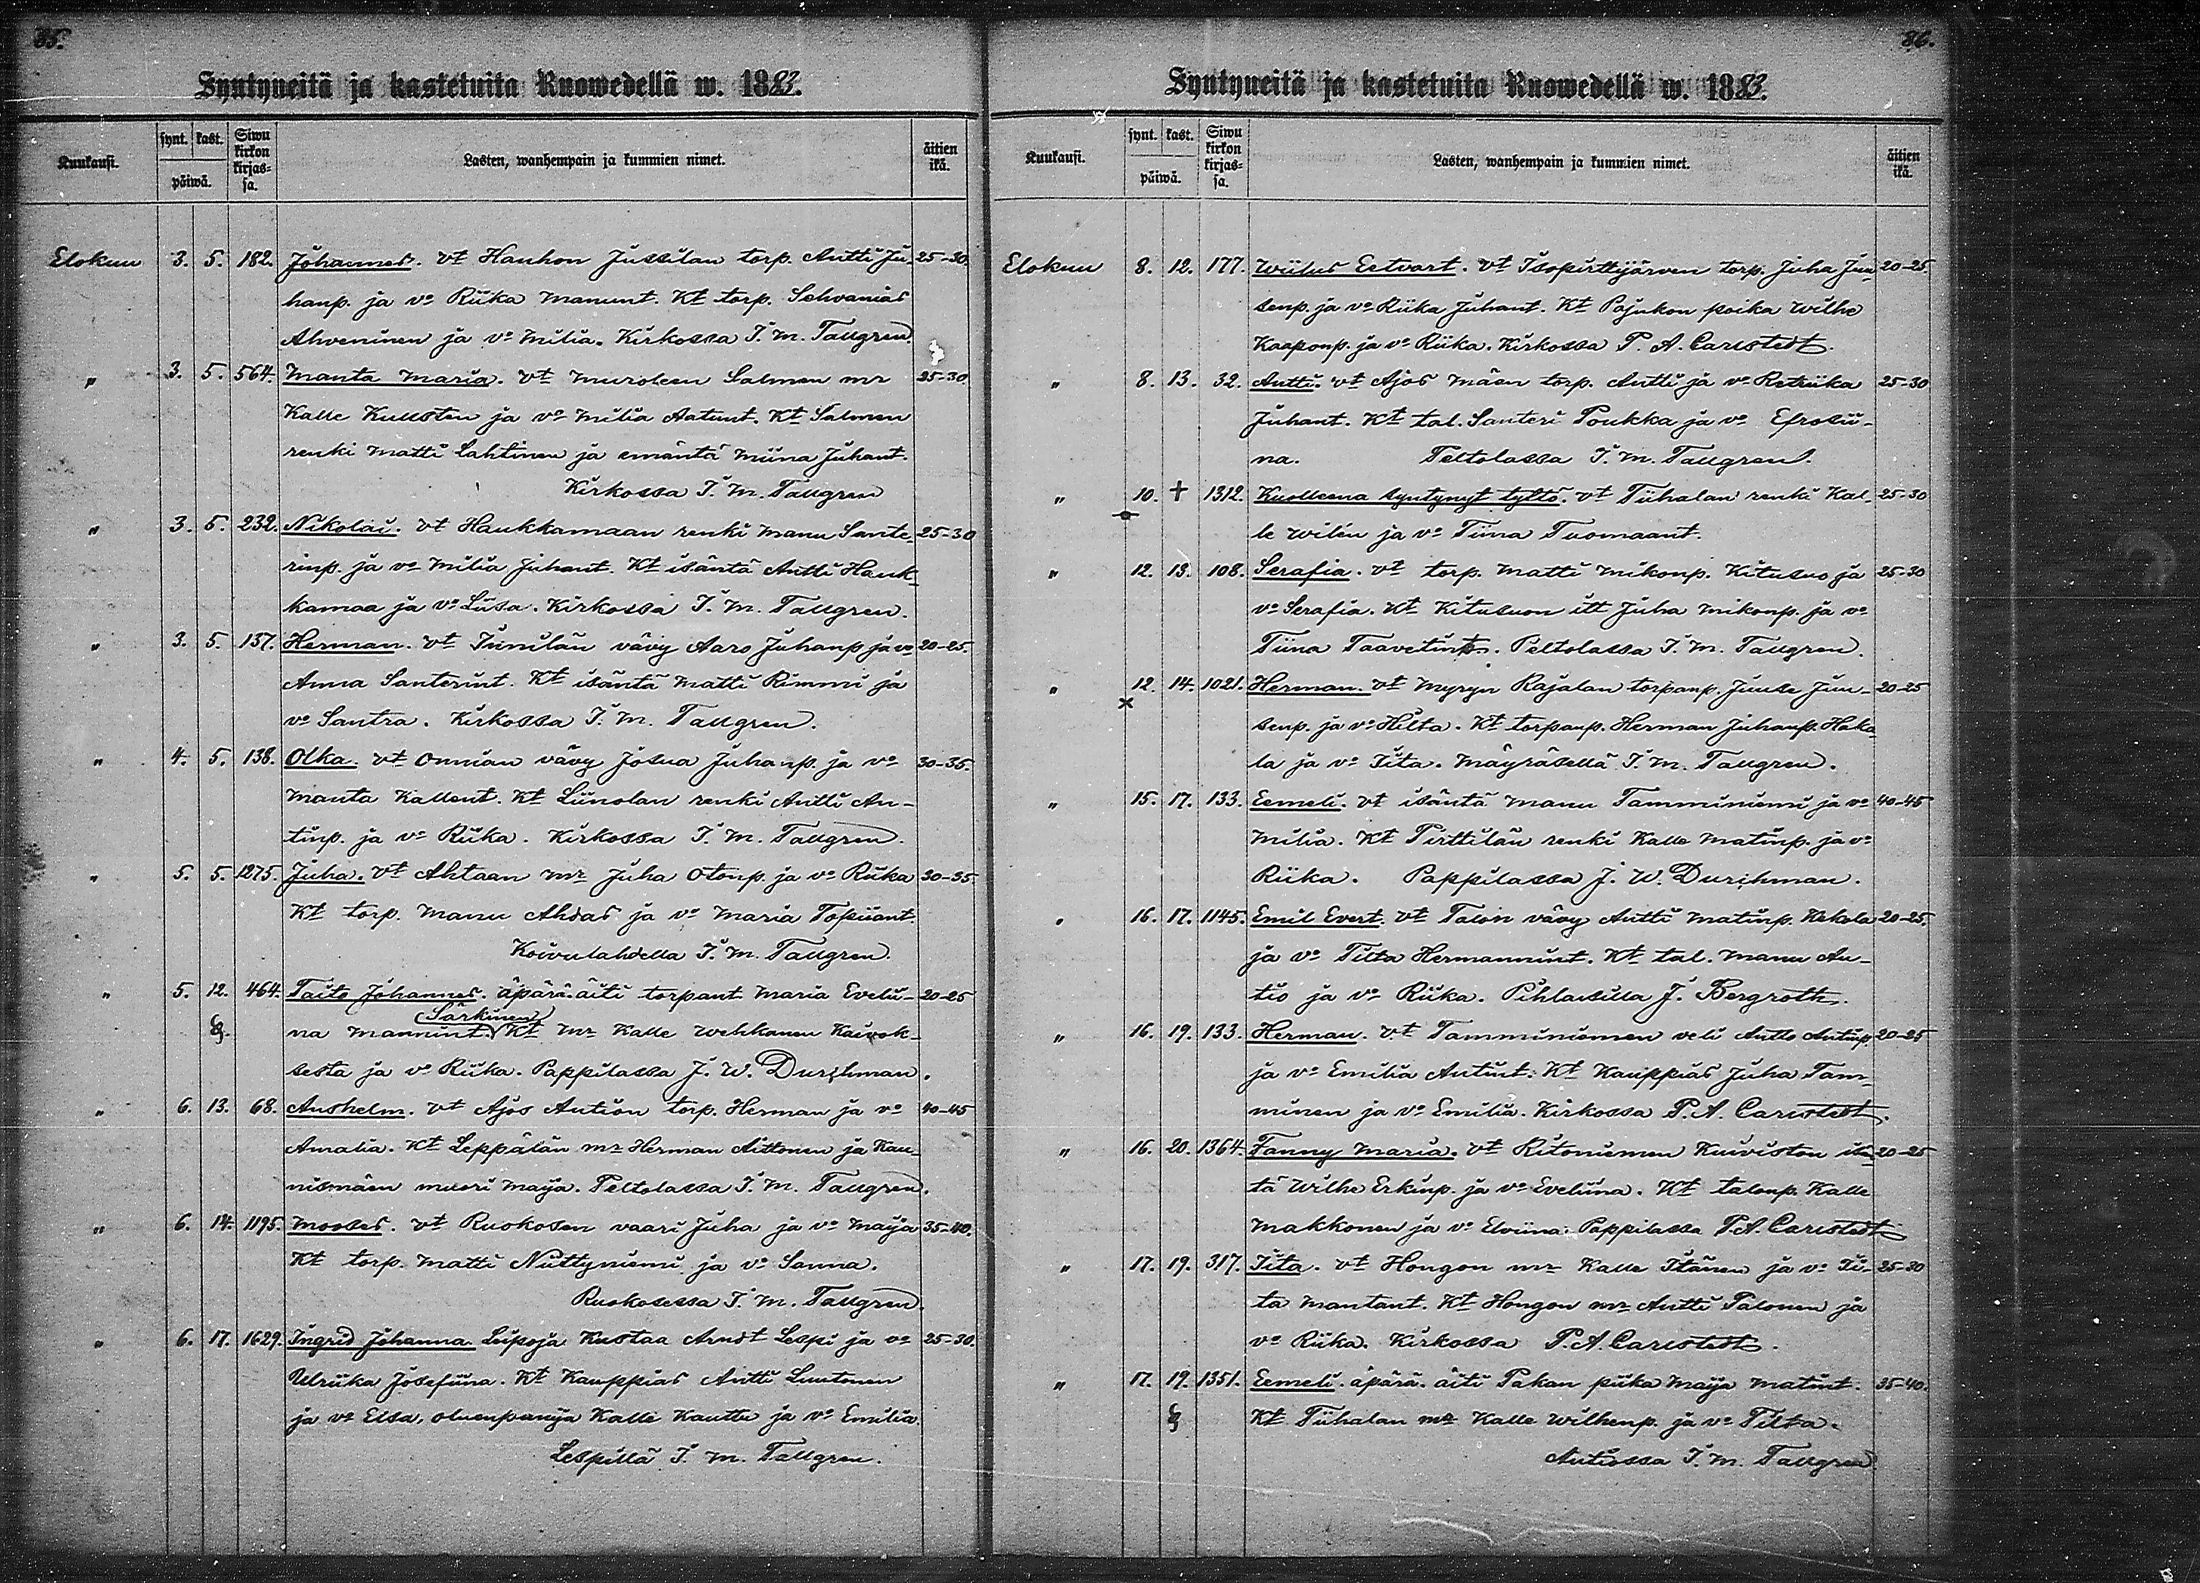 85.
Syntyneitä ja kastetuita Ruowedellä w. 1883.
Kuukausi. synt. kast. päiwä. Siwu kirkon kirjassa. Lasten, wanhempain ja kummien nimet. äitien ikä.
Elokuu 3. 5. 182. Johannes. vt Hauhon Jussilan torp. Antti Ju- 25-30.
hanp. ja vo Riika Manunt. Kt torp. Sehvanias
Ahveninen ja vo Milia. Kirkossa I. M. Tallgren
" 3. 5. 564. Manta Maria. vt Muroleen Salmen mr 25-30.
Kalle Kullsten ja vo Milia Aatunt. Kt Salmen
renki Matti Lahtinen ja emäntä Miina Juhant.
Kirkossa I. M. Tallgren
" 3. 5. 232. Nikolai. vt Haukkamaan renki Manu Sante- 25-30
rinp. ja vo Milia Juhant. Kt isäntä Antti Hauk-
kamaa ja vo Liisa. Kirkossa I. M. Tallgren.
" 3. 5. 137. Herman. vt Iinilän vävy Aaro Juhanp ja vo 20-25.
Anna Santerint. Kt isäntä Matti Rimmi ja
vo Santra. Kirkossa I. M. Tallgren.
" 4. 5. 138. Olka. vt Onnian vävy Josua Juhanp. ja vo 30-35.
Manta Kallent. Kt Liinolan renki Antti An-
tinp. ja vo Riika. Kirkossa I. M. Tallgren.
" 5. 5. 1275. Juha. vt Ahtaan mr Juha Otonp. ja vo Riika 30-35.
Kt torp. Manu Ahdas ja vo Maria Topiiant.
Koivulahdella I. M. Tallgren.
" 5. 12. 464. Taito Johannes. äpärä. äiti torpant. Maria Evelii- 20-25
(Särkinen)
na Mannint. Kt mr Kalle Wehkanen Kaivok-
sesta ja vo Riika. Pappilassa J. W. Durchman.
" 6. 13. 68. Anshelm. vt Ajos Aution torp. Herman ja vo 40-45
Amalia. Kt Leppälän mr Herman Aittonen ja Kau-
nismäen muori Maija. Peltolassa I. M. Tallgren.
" 6. 14. 1195. Mooses. vt Ruokosen vaari Juha ja vo Maija 35-40.
Kt torp. Matti Niittyniemi ja vo Sanna.
Ruokosessa I. M. Tallgren.
" 6. 17. 1629. Ingrid Johanna. Leipoja Kustaa Arndt Lespi ja vo 25-30.
Ulriika Josefiina. Kt Kauppias Antti Luutonen
ja vo Elsa, oluenpanija Kalle Kauttu ja vo Emilia
Lespillä I. M. Tallgren.
86.
Syntyneitä ja kastetuita Ruowedellä w. 1883.
Kuukausi. synt. kast. päiwä. Siwu kirkon kirjassa. Lasten, wanhempain ja kummien nimet. äitien ikä.
Elokuu 8. 12. 177. Wiilus Eetvart. vt Isopirttijärven torp. Juha Juu- 20-25
senp. ja vo Riika Juhant. Kt Pajukon poika Wilhe
Kaaponp. ja vo Riika. Kirkossa P. A. Carlstedt.
" 8. 13. 32. Antti. vt Ajos Mäen torp. Antti ja vo Retriika 25-30
Juhant. Kt tal. Santeri Poukka ja vo Efrosii-
na. Peltolassa I. M. Tallgren.
" 10. + 1312. Kuolleena syntynyt tyttö. vt Tiihalan renki Kal- 25-30
le Wilén ja vo Tiina Tuomaant.
" 12. 13. 108. Serafia. vt torp. Matti Mikonp. Kitusuo ja 25-30
vo Serafia. Kt Kitusuon itt Juha Mikonp. ja vo
Tiina Taavetint. Peltolassa I. M. Tallgren.
" 12. 14. 1021. Herman. vt Myryn Rajalan torpanp. Juuse Juu- 20-25
x
senp. ja vo Hilta. Kt torpanp. Herman Juhanp. Haka-
la ja vo Iita. Mäyräsellä I. M. Tallgren.
" 15. 17. 133. Eemeli. vt isäntä Manu Tamminiemi ja vo 40-45
Milia. Kt Pirttilän renki Kalle Matinp. ja vo
Riika. Pappilassa J. W. Durchman.
" 16. 17. 1145. Emil Evert. vt Talon vävy Antti Matinp. Kekola 20-25.
ja vo Tilta Hermannint. Kt tal. Manu Au-
tio ja vo Riika. Pihlaisilla J. Bergroth.
" 16. 19. 133. Herman. vt Tamminiemen veli Antto Antinp. 20-25
ja vo Emilia Antint. Kt Kauppias Juha Tam-
minen ja vo Emilia. Kirkossa P. A. Carlstedt.
" 16. 20. 1364. Fanny Maria. vt Ritoniemen Kuiviston isän- 20-25
tä Wilhe Erkinp. ja vo Eveliina. Kt talonp. Kalle
Makkonen ja vo Elviina. Pappilassa P. A. Carlstedt
" 17. 19. 317. Iita. vt Hongon mr Kalle Itänen ja vo Ii- 25-30
ta Mantant. Kt Hongon mr Antti Salonen ja
vo Riika. Kirkossa P. A. Carlstedt.
" 17. 19. 1351. Eemeli. äpärä. äiti Pakan piika Maija Matint. 35-40.
Kt Tiihalan mr Kalle Wilhenp. ja vo Tilta.
Autiossa I. M. Tallgren.